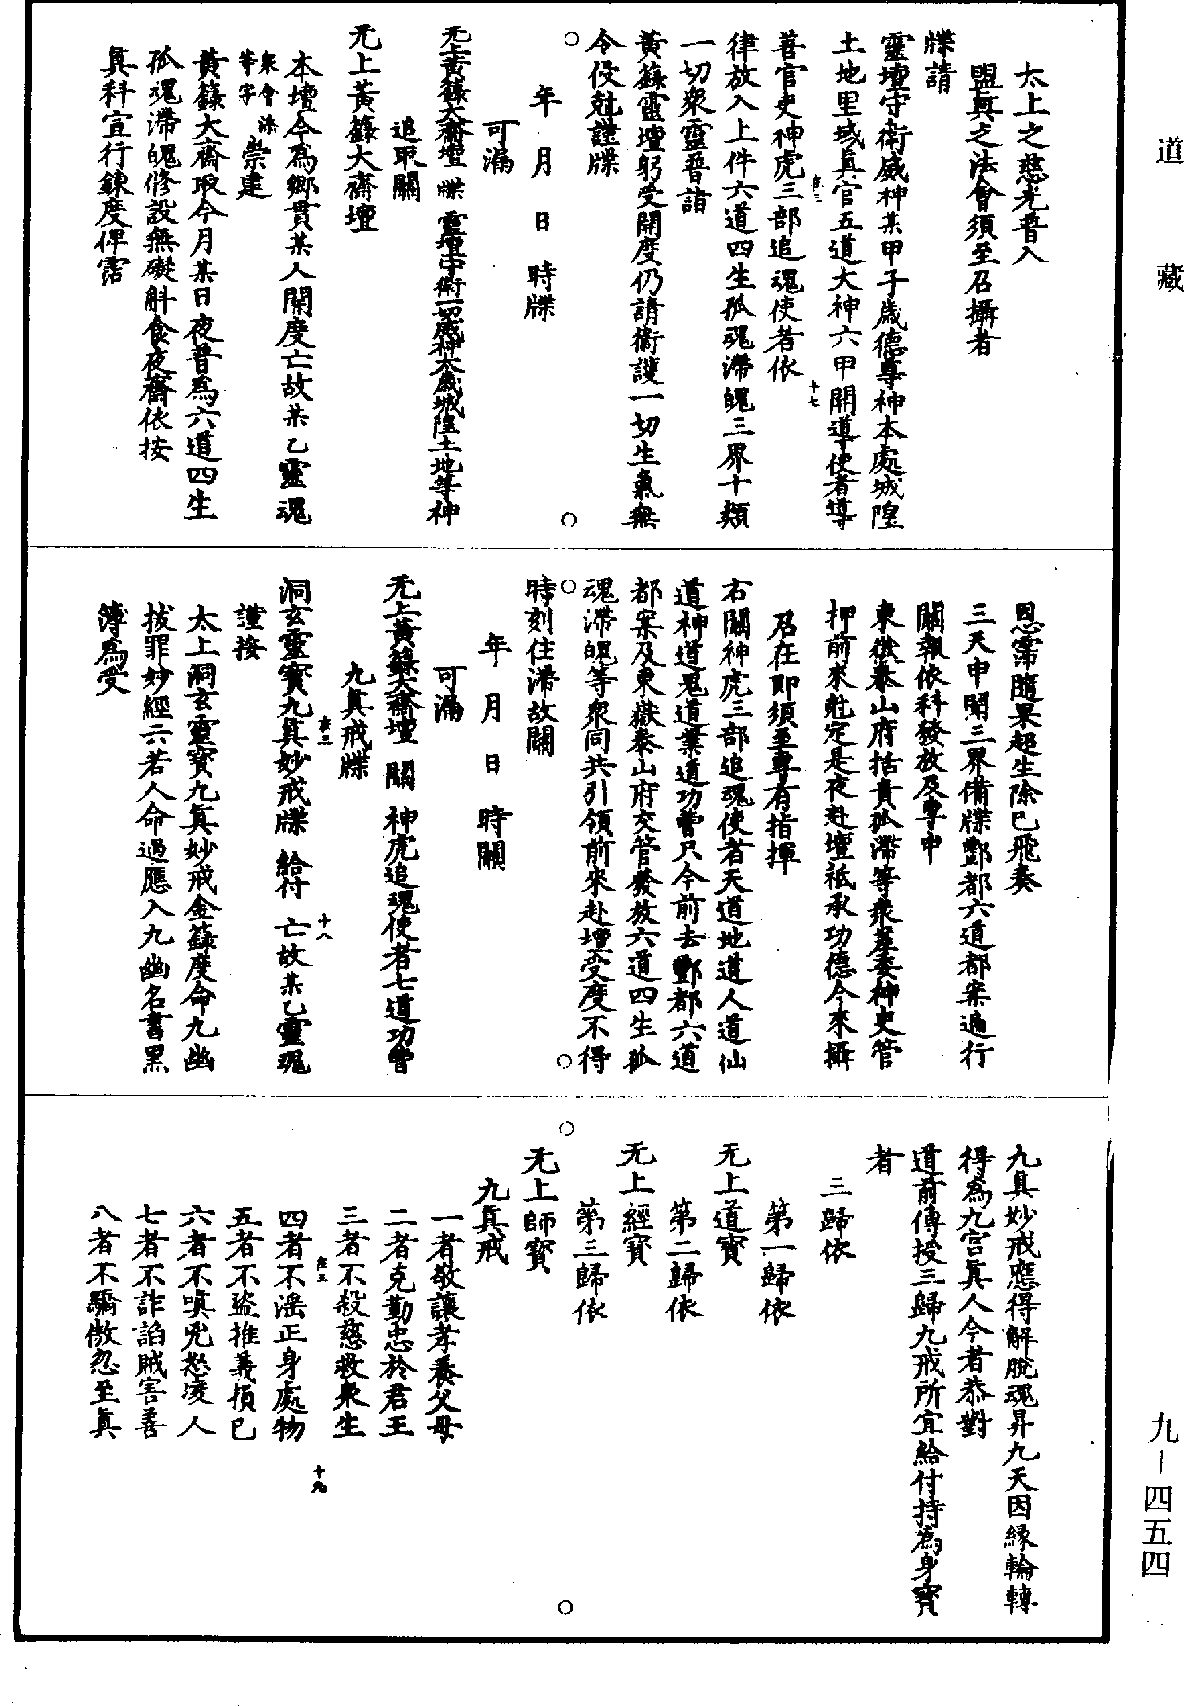 道藏
太上之慈光普入
盟眞之法會須至召攝者
牒請
靈壇守衛威神某甲子歲德尊神本處城隍
土地里域眞官五道大神六甲開導使者導
善官吏神虎三部追魂使者依
律放入上件六道四生孤魂滯魄三界十類
一切衆靈普詣
黃籙靈壇躬受開度仍請衛護一切生氣無
令侵尅謹牒
年 月 日 時牒
可漏
无上黃籙大齋壇 牒 靈壇守衛一切威神太歲城隍土地等神
追取關
无上黃籙大齋壇
本壇今爲鄉貫某人開度亡故某乙靈魂
衆會添
等字
崇建
黃籙大齋取今月某日夜普爲六道四生
孤魂滯魄修設無礙斛食夜齋依按
眞科宣行鍊度俾霑
十七
恩霈隨果超生除已飛奏
三天申聞三界備牒酆都六道都案遍行
關報依科發放及專申
東嶽泰山府括責孤滯等衆差委神吏管
押前來尅定是夜赴壇祗承功德今來攝
召在即須至專有指揮
右關神虎三部追魂使者天道地道人道仙
道神道鬼道業道功曹只今前去酆都六道
都案及東嶽泰山府交管發放六道四生孤
魂滯魄等衆同共引領前來赴壇受度不得
時刻住滯故關
年 月 日 時關
可漏
无上黃籙大齋壇 關 神虎追魂使者七道功曹
九眞戒牒
洞玄靈寶九眞妙戒牒 給付 亡故某乙靈魂
十八
謹按
太上洞玄靈寶九眞妙戒金籙度命九幽
拔罪妙經云若人命過應入九幽名書黑
簿爲受
九眞妙戒應得解脫魂昇九天因緣輪轉
得爲九宮眞人今者恭對
道前傳授三歸九戒所宜給付持爲身寶
者
三歸依
第一歸依
无上道寶
第二歸依
无上經寶
第三歸依
无上師寶
九眞戒
一者敬讓孝養父母
二者克勤忠於君王
三者不殺慈救衆生
四者不淫正身處物
十九
五者不盜推義損己
六者不嗔兇怒凌人
七者不詐諂賊害善
八者不驕傲忽至眞
九－四五四